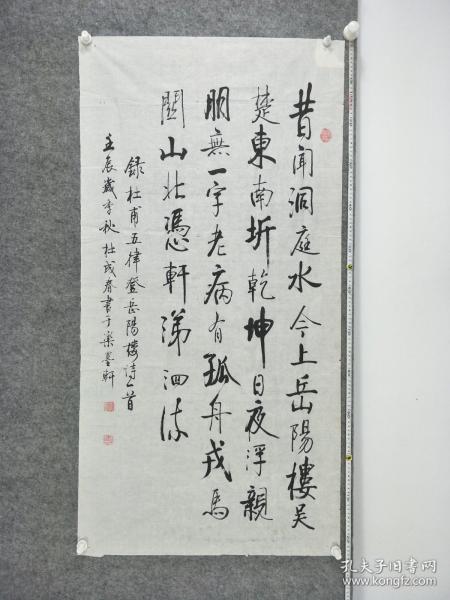 昔聞洞庭水今上岳陽樓吴
楚東南坼乾坤日夜浮親
朋無一字老病有孤舟戎馬
關山北憑軒涕泗流
錄杜甫五律登岳陽樓詩一首
壬辰歲季秋杜成春書于樂墨軒
孔夫子旧书网
www.kongfz.com